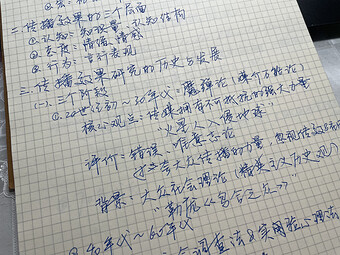 二、传播效果的三个层面
①认知：知识量、认知结构
②态度：情绪、情感
③行为：言行表现
三、传播效果研究的历史与发展
(一)、三个阶段
①20世纪初～30年代：魔弹论（媒介万能论）
核心观点：传媒拥有不可抵抗的强大力量
"火星人入侵地球"
评价：错误，唯意志论
大众传播的力量，忽视
背景：大众社会理论（精英主义历史观）
勒庞《乌合之众》
②40年代～60年代
调查法&实用心理